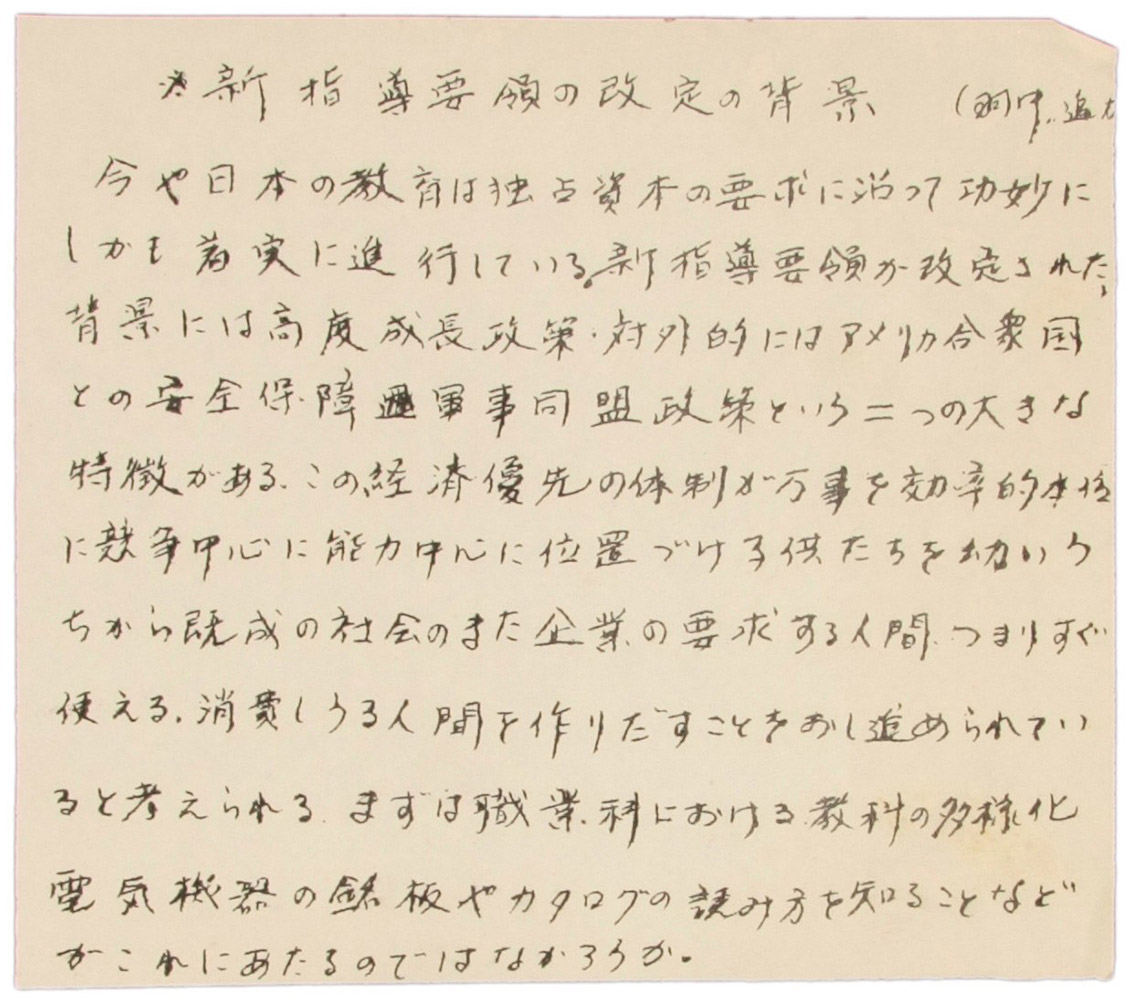 ※新指導要領の改定の背景
今や日本の教育は独占資本の要求に沿って功妙に
しかも着実に進行している。新指導要領が改定された、
背景には高度成長政策・対外的にはアメリカ合衆国
との安全保障軍事同盟政策という二つの大きな
特徴がある、この経済優先の体制が万事を効率的本位
に競争中心に能力中心に位置づけ子供たちを幼いう
ちから既成の社会のまた企業の要求する人間、つまりすぐ
使える、消費しうる人間を作りだすことをおし進められてい
ると考えられる、まずは職業科における教科の多様化
電気機器の銘板やカタログの読み方を知ることなど
がこれにあたるのではなかろうか。